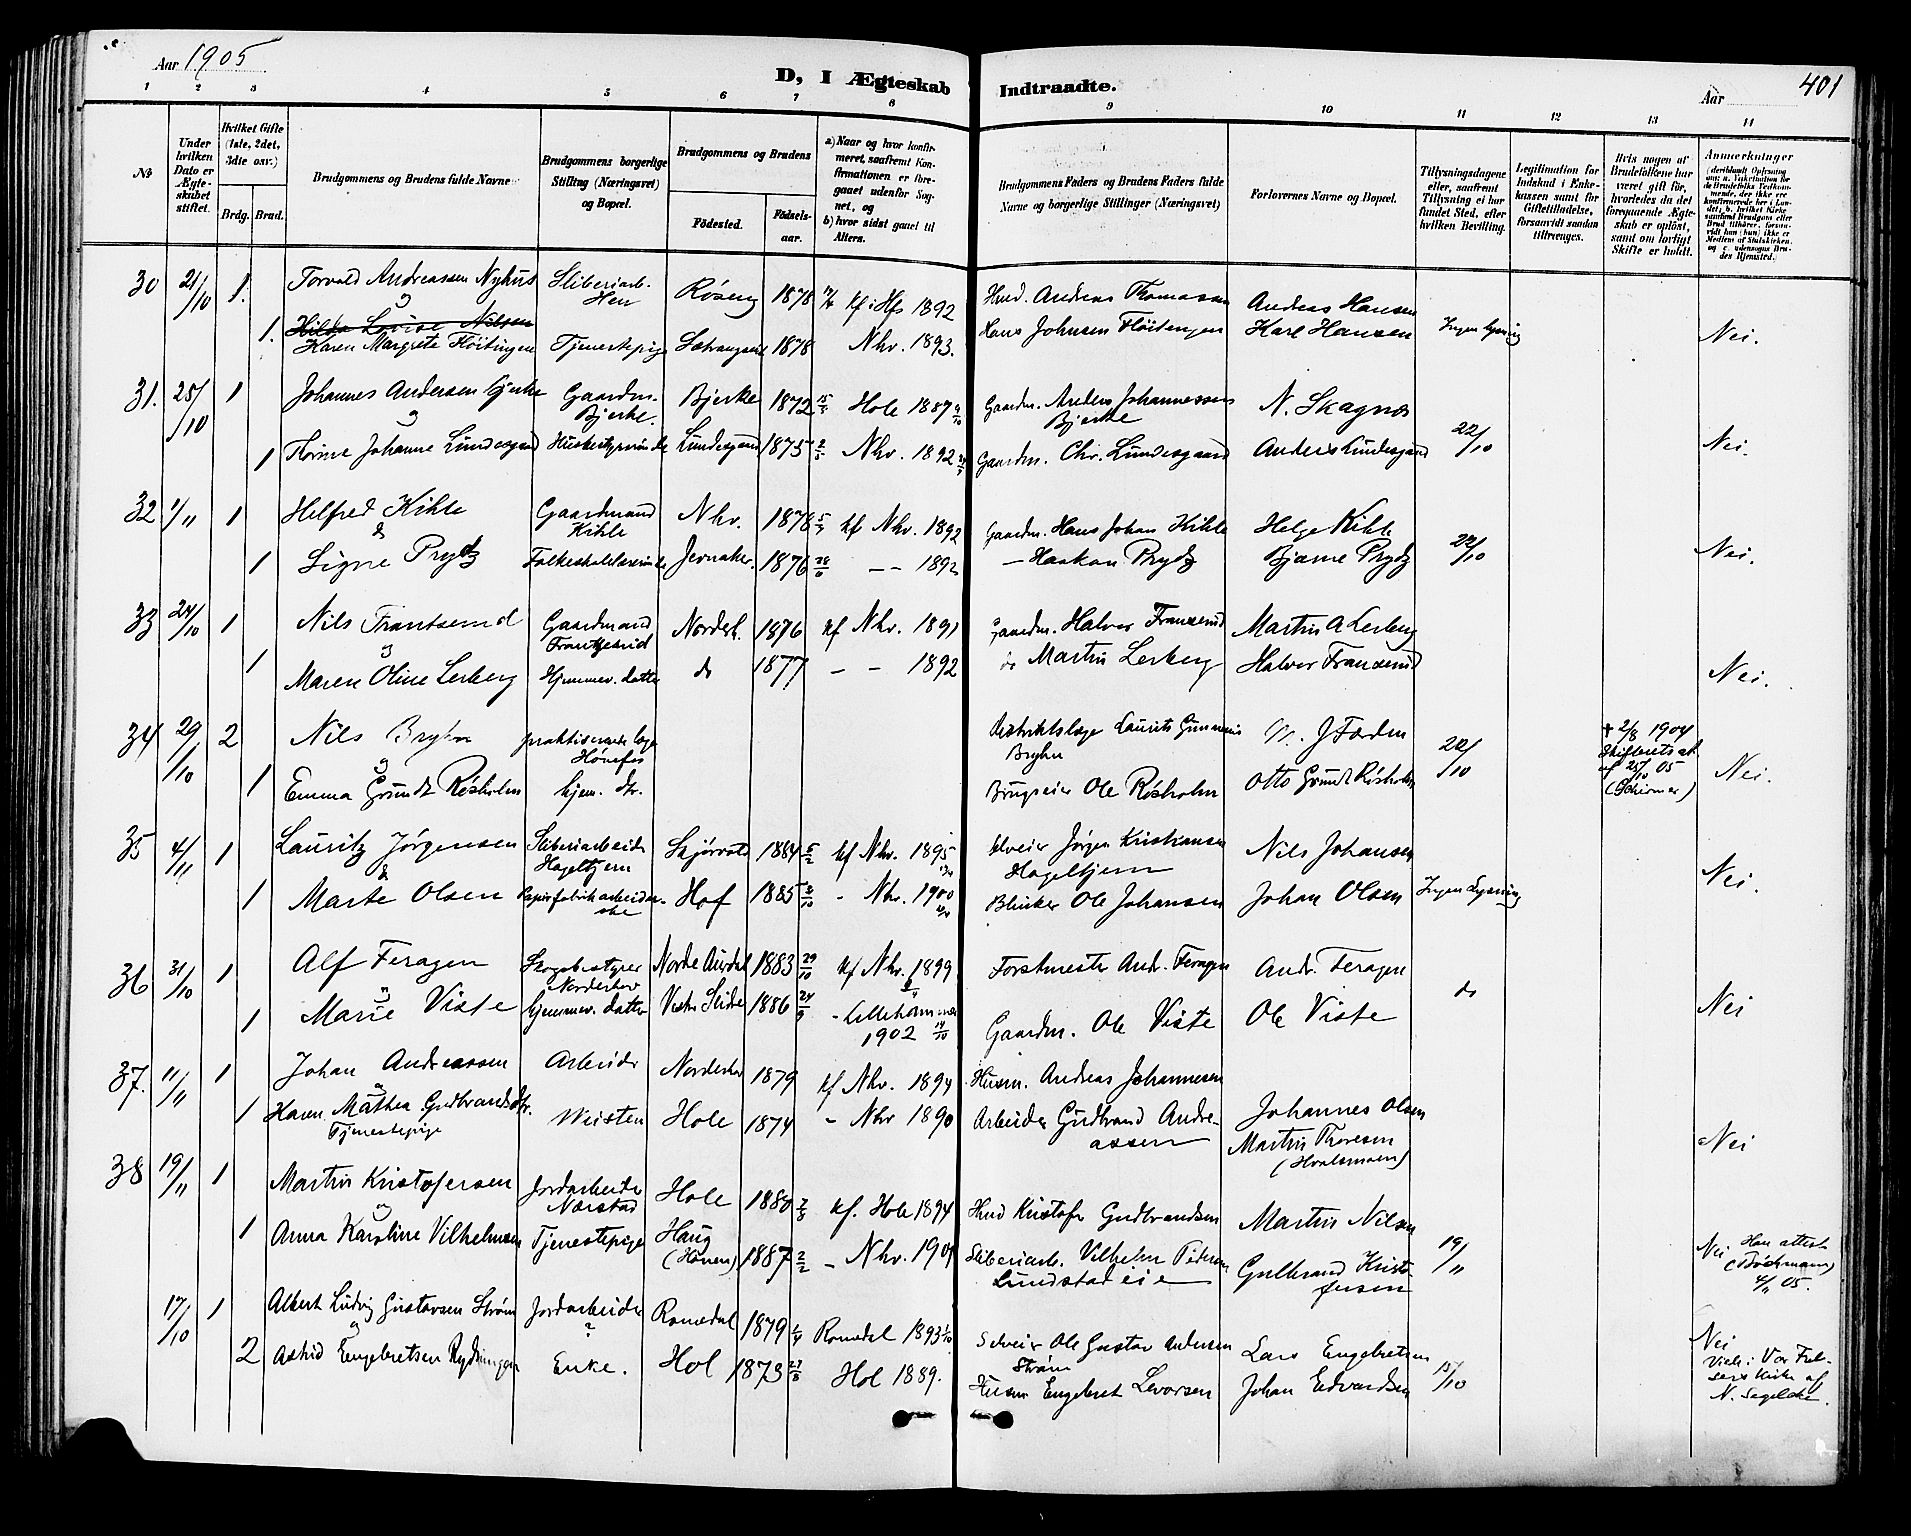 Aar 1905
D, I Ægteskab Indtraadte.
Aar
401
1 2 3 4 5 6 7 8 9 10 11 12 13 14
No
Under hvilken Dato er Ægteskabet stiftet.
Hvilket Gifte (1ste, 2det, 3die osv.)
Brdg. Brud.
Brudgommens og Brudens fulde Navne
Brudgommens borgerlige Stilling (Næringsvei) og Bopæl.
Brudgommens og Brudens
Födested.
Födsels-aar.
a) Naar og hvor konfirmeret, saafremt Konfirmationen er foregaaet udenfor Sognet, og
b) hvor sidst gaaet til Alters.
Brudgommens Faders og Brudens Faders fulde Navne og borgerlige Stillinger (Næringsvei)
Forlovernes Navne og Bopæl.
Tillysningsdagene eller, saafremt Tillysning ei har fundet Sted, efter hvilken Bevilling.
Legitimation for Indskud i Enkekassen samt for Giftetilladelse, forsaavidt saadan tiltrænges.
Hvis nogen af Brudefolkene har været gift før, hvorledes da det foregaaende Ægteskab er opløst, samt om lovligt Skifte er holdt.
Anmerkninger
30 21/10 1. Torvald Andreassen Nyhus Sliberiarb. Hen 1878 kf i Hfs 1892 Andreas Thomassen Anders Hansen
og
1. Hilda Louise Nilsen
Karen Margrete Flöitingen Tjenestepige 1878 Nhv. 1893. Hans Johnsen Flöitengen Karl Hansen Ingen lysning Nei.
31. 25/10 1 Johannes Andersen Bjerke Gaardm. Bjerke. Bjerke 1872 Hole 1887 Gaardm. Anders Johannessen Bjerke N. Skagnæs
og
1 Johanne Lundesgaard Lundesgaard 1875 Nhv. 1892 Gaardm. Chr. Lundesgaard Anders Lundesgaard 22/10 Nei.
32 1/11 1 Helfred Kihle Gaardmand Kihle Nhv. 1878 kf Nhv. 1892 Gaardm. Hans Johan Kihle Helge Kihle
&
1 Signe Prydz Jevnaker. 1876 – – 1892 – Haakon Prydz Bjarne Prydz 22/10 Nei.
33 24/10 1 Nils Frantserud Gaardmand Nordeh. 1876 kf Nhv. 1891 Gaardm. Halvor Franserud Martin A Lerberg
og
1 Maren Oline Lerberg Hjemmev. datter do 1877 – – 1892 do Martin Lerberg Halvor Franserud Nei.
34 29/10 2 Nils Bryhn praktiserende læge Hönefos Distriktslæge Laurits Bryhn † 2/8 1904
og
1 Emma Grundt Røsholm hjem. dtr. Brugseier Ole Røsholm Otto Grundt Røsholm 22/10 af 25/10 05 (Schirmer) Nei.
35 4/11 1 Lauritz Jørgensen Sliberiarbeider Hageltjern 1884 5/2 kf Nhv. 1895 Selveier Jørgen Kristiansen Hageltjern Nils Johansen
&
1 Marte Olsen Papirfabrikarbeiderske Hof 1885 – Nhv. 1900 Ole Johansen Johan Olsen Ingen Lysning Nei.
36 31/10 1 Alf Feragen Skogbestyrer Norderhov Nordre Aurdal 1883 29/10 kf Nhv. 1899 Forstmester Andr. Feragen Andr. Feragen
og
1 Marie Viste hjemmev. datter Vestre Slidre 1886 – Lillehammer 1902 Gaardm. Ole Viste Ole Viste do Nei
37. 11/11 1 Johan Andreassen Arbeider Norderhov 1879 kf Nhv. 1894 Husm. Andreas Johannesen
og
1 Karen Mathea Gudbrandsdtr. Tjenestepige Veisten Hole 1874 – Nhv 1890 Arbeider Gudbrand Andreassen Johannes Olsen
Martin Thoresen (Hvalsmoen) Nei
38 19/11 1 Martin Kristofersen Jordarbeider Nærstad Hole 1880 kf. Hole 1894 Kristofer Gudbrandsen Martin Nilsen
og
1 Anna Karoline Vilhelmsen Tjenestepige Haug (Hönen) 1887 2/2 – Nhv. 1901 Sliberiarb. Vilhelm Petersen Lundstadeie Gulbrand Kristofersen 19/11 Nei Han attest (Bóckmann) 4/11 05.
17/10 1 Albert Ludvig Gustavsen Ström Jordarbeider Romedal 1879 1/4 Romedal 1893 Selveier Ole Gustav Andersen Ström Lars Engebretsen
og
2 Astrid Engebretsen Enke. Hol 1873 Hol 1889. Husm Engebret Levorsen Johan Edvardsen 15/10 Nei
Viet i Vor Frelsers Kirke af N. Segelcke.